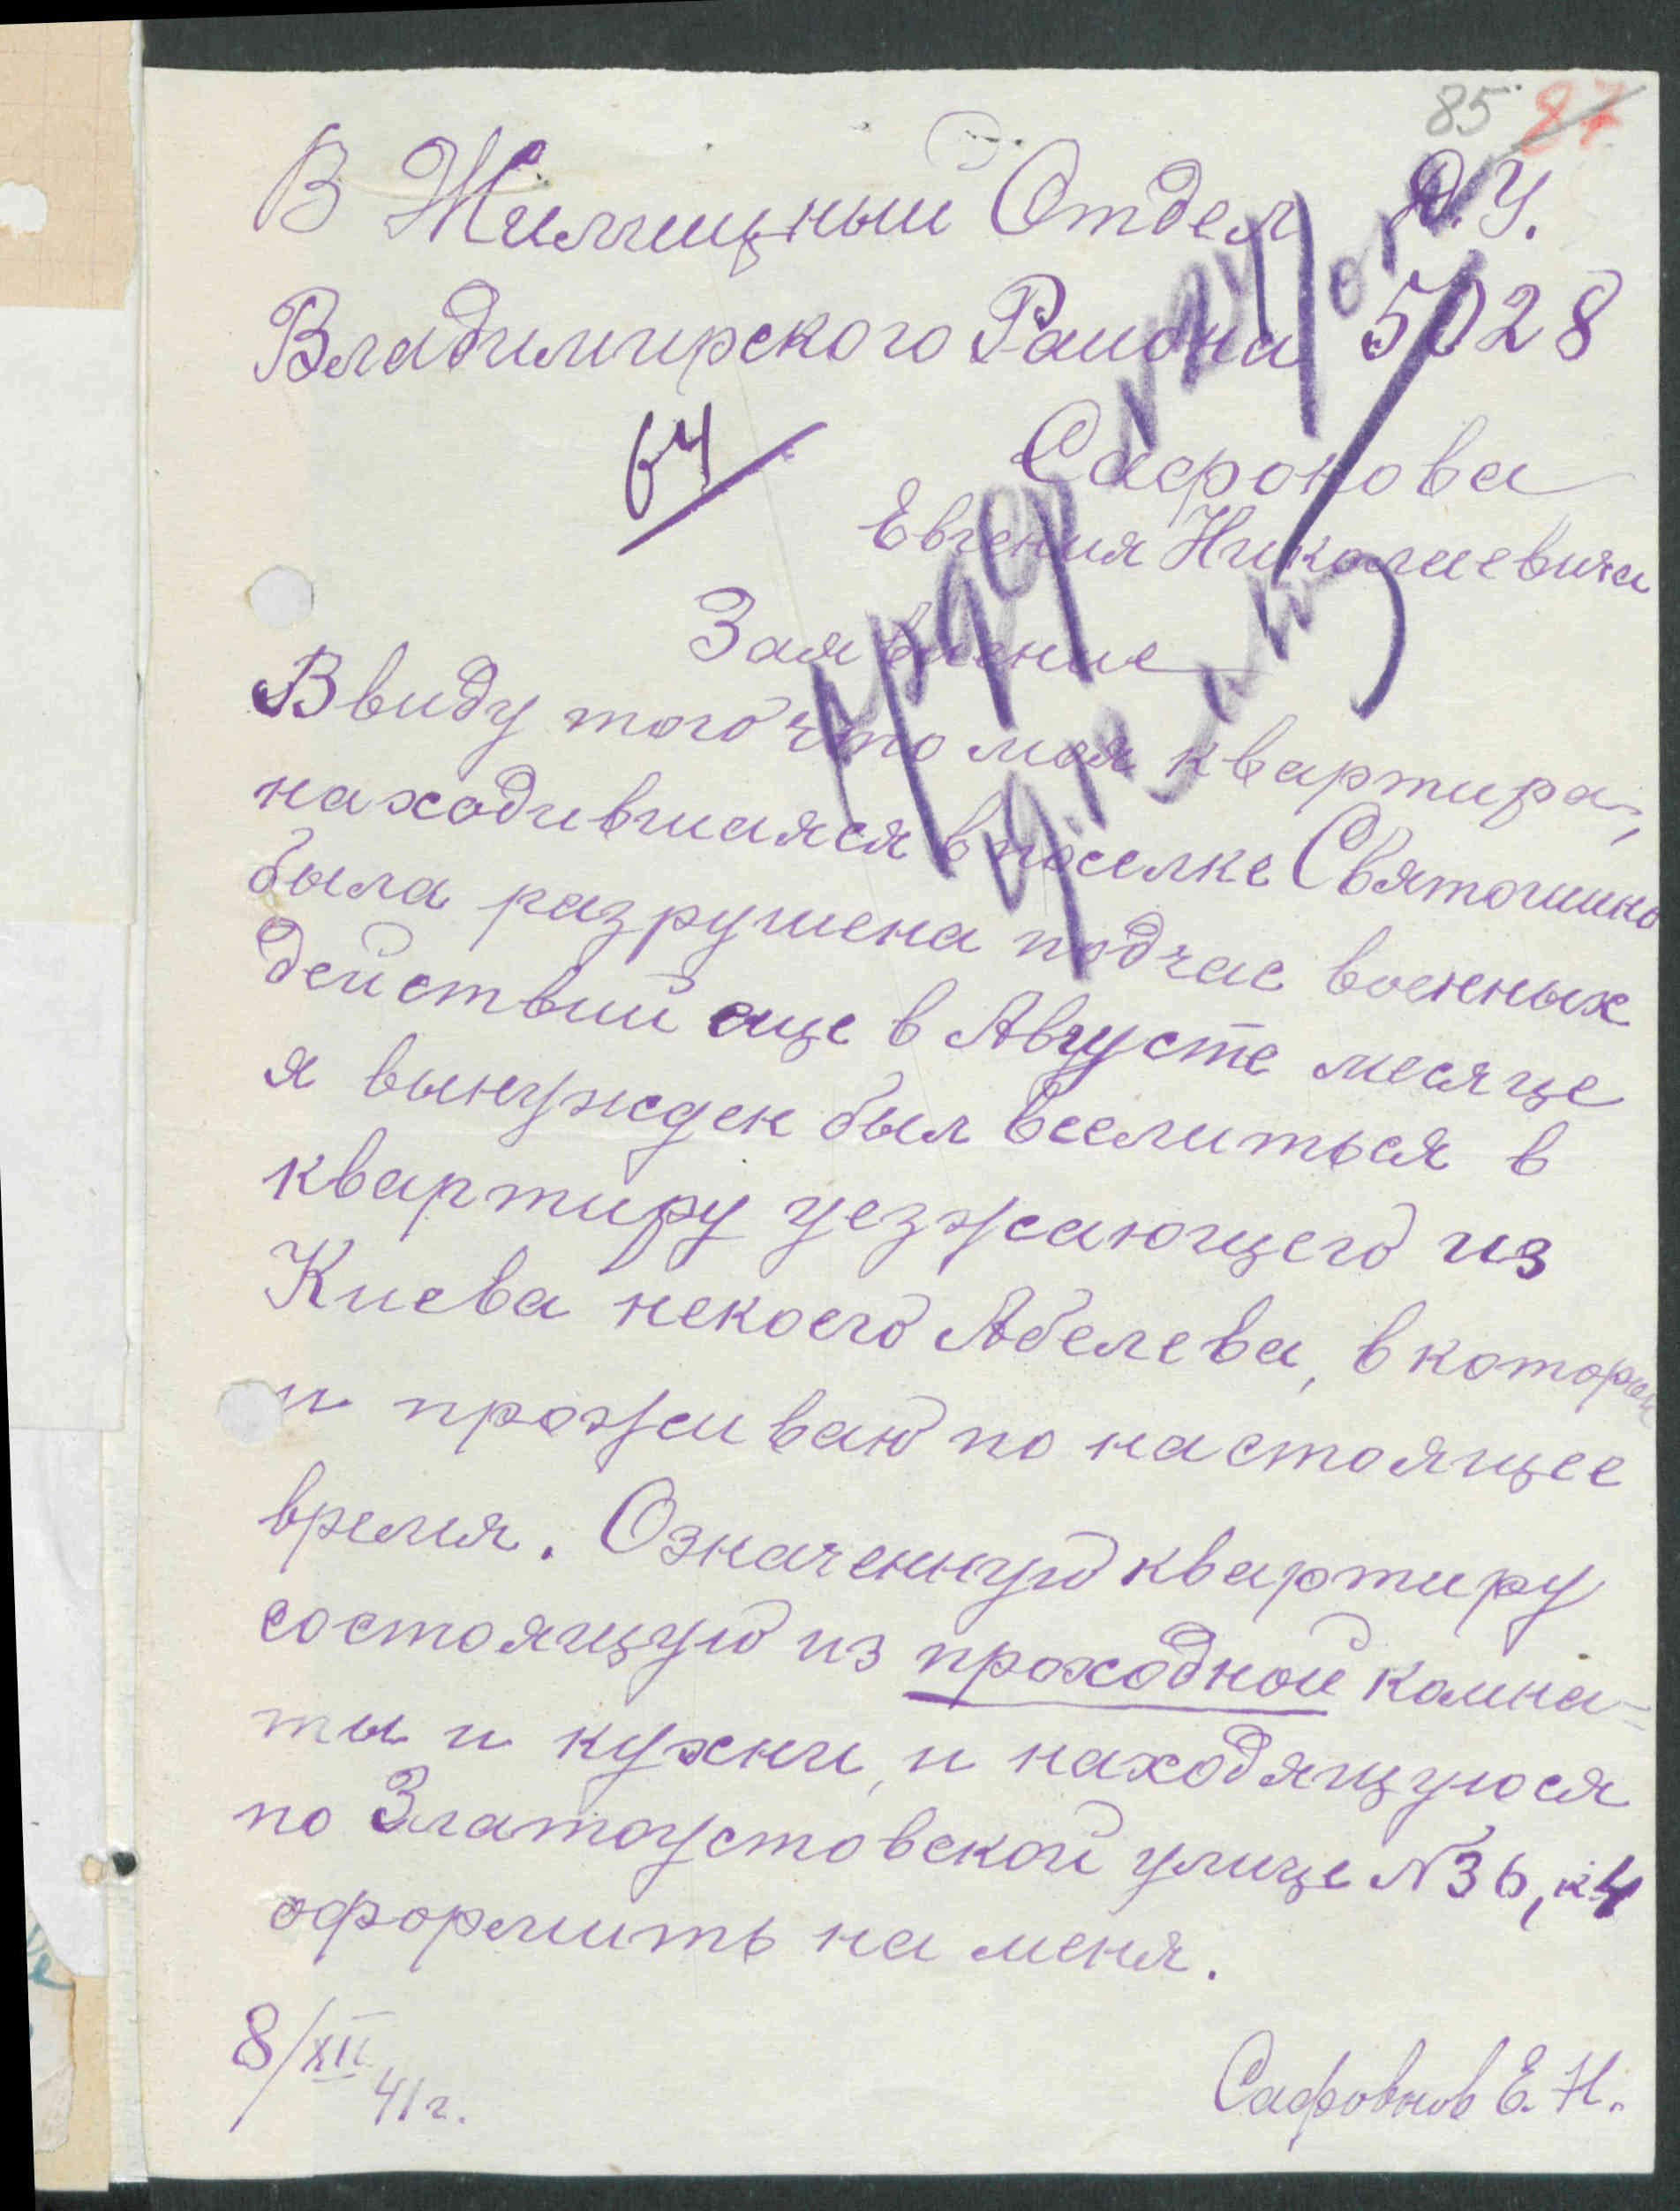 85 87
В Жилищный Отдел Д.У.
Владимирского Района 5028
64
Сафронова
Евгения Николаевича
Заявление
Ввиду того что моя квартира,
находившаяся в поселке Святошино
была разрушена подчас военных
действий еще в Августе месяце
я вынужден был вселиться в
квартиру уезжающего из
Киева некоего Абелева, в которой
и проживаю по настоящее
время. Означенную квартиру
состоящую из проходной комна=
ты и кухни, и находящуюся
по Златоустовской улице N36, к4
оформить на меня.
8/XII 41 г.
Сафронов Е. Н.